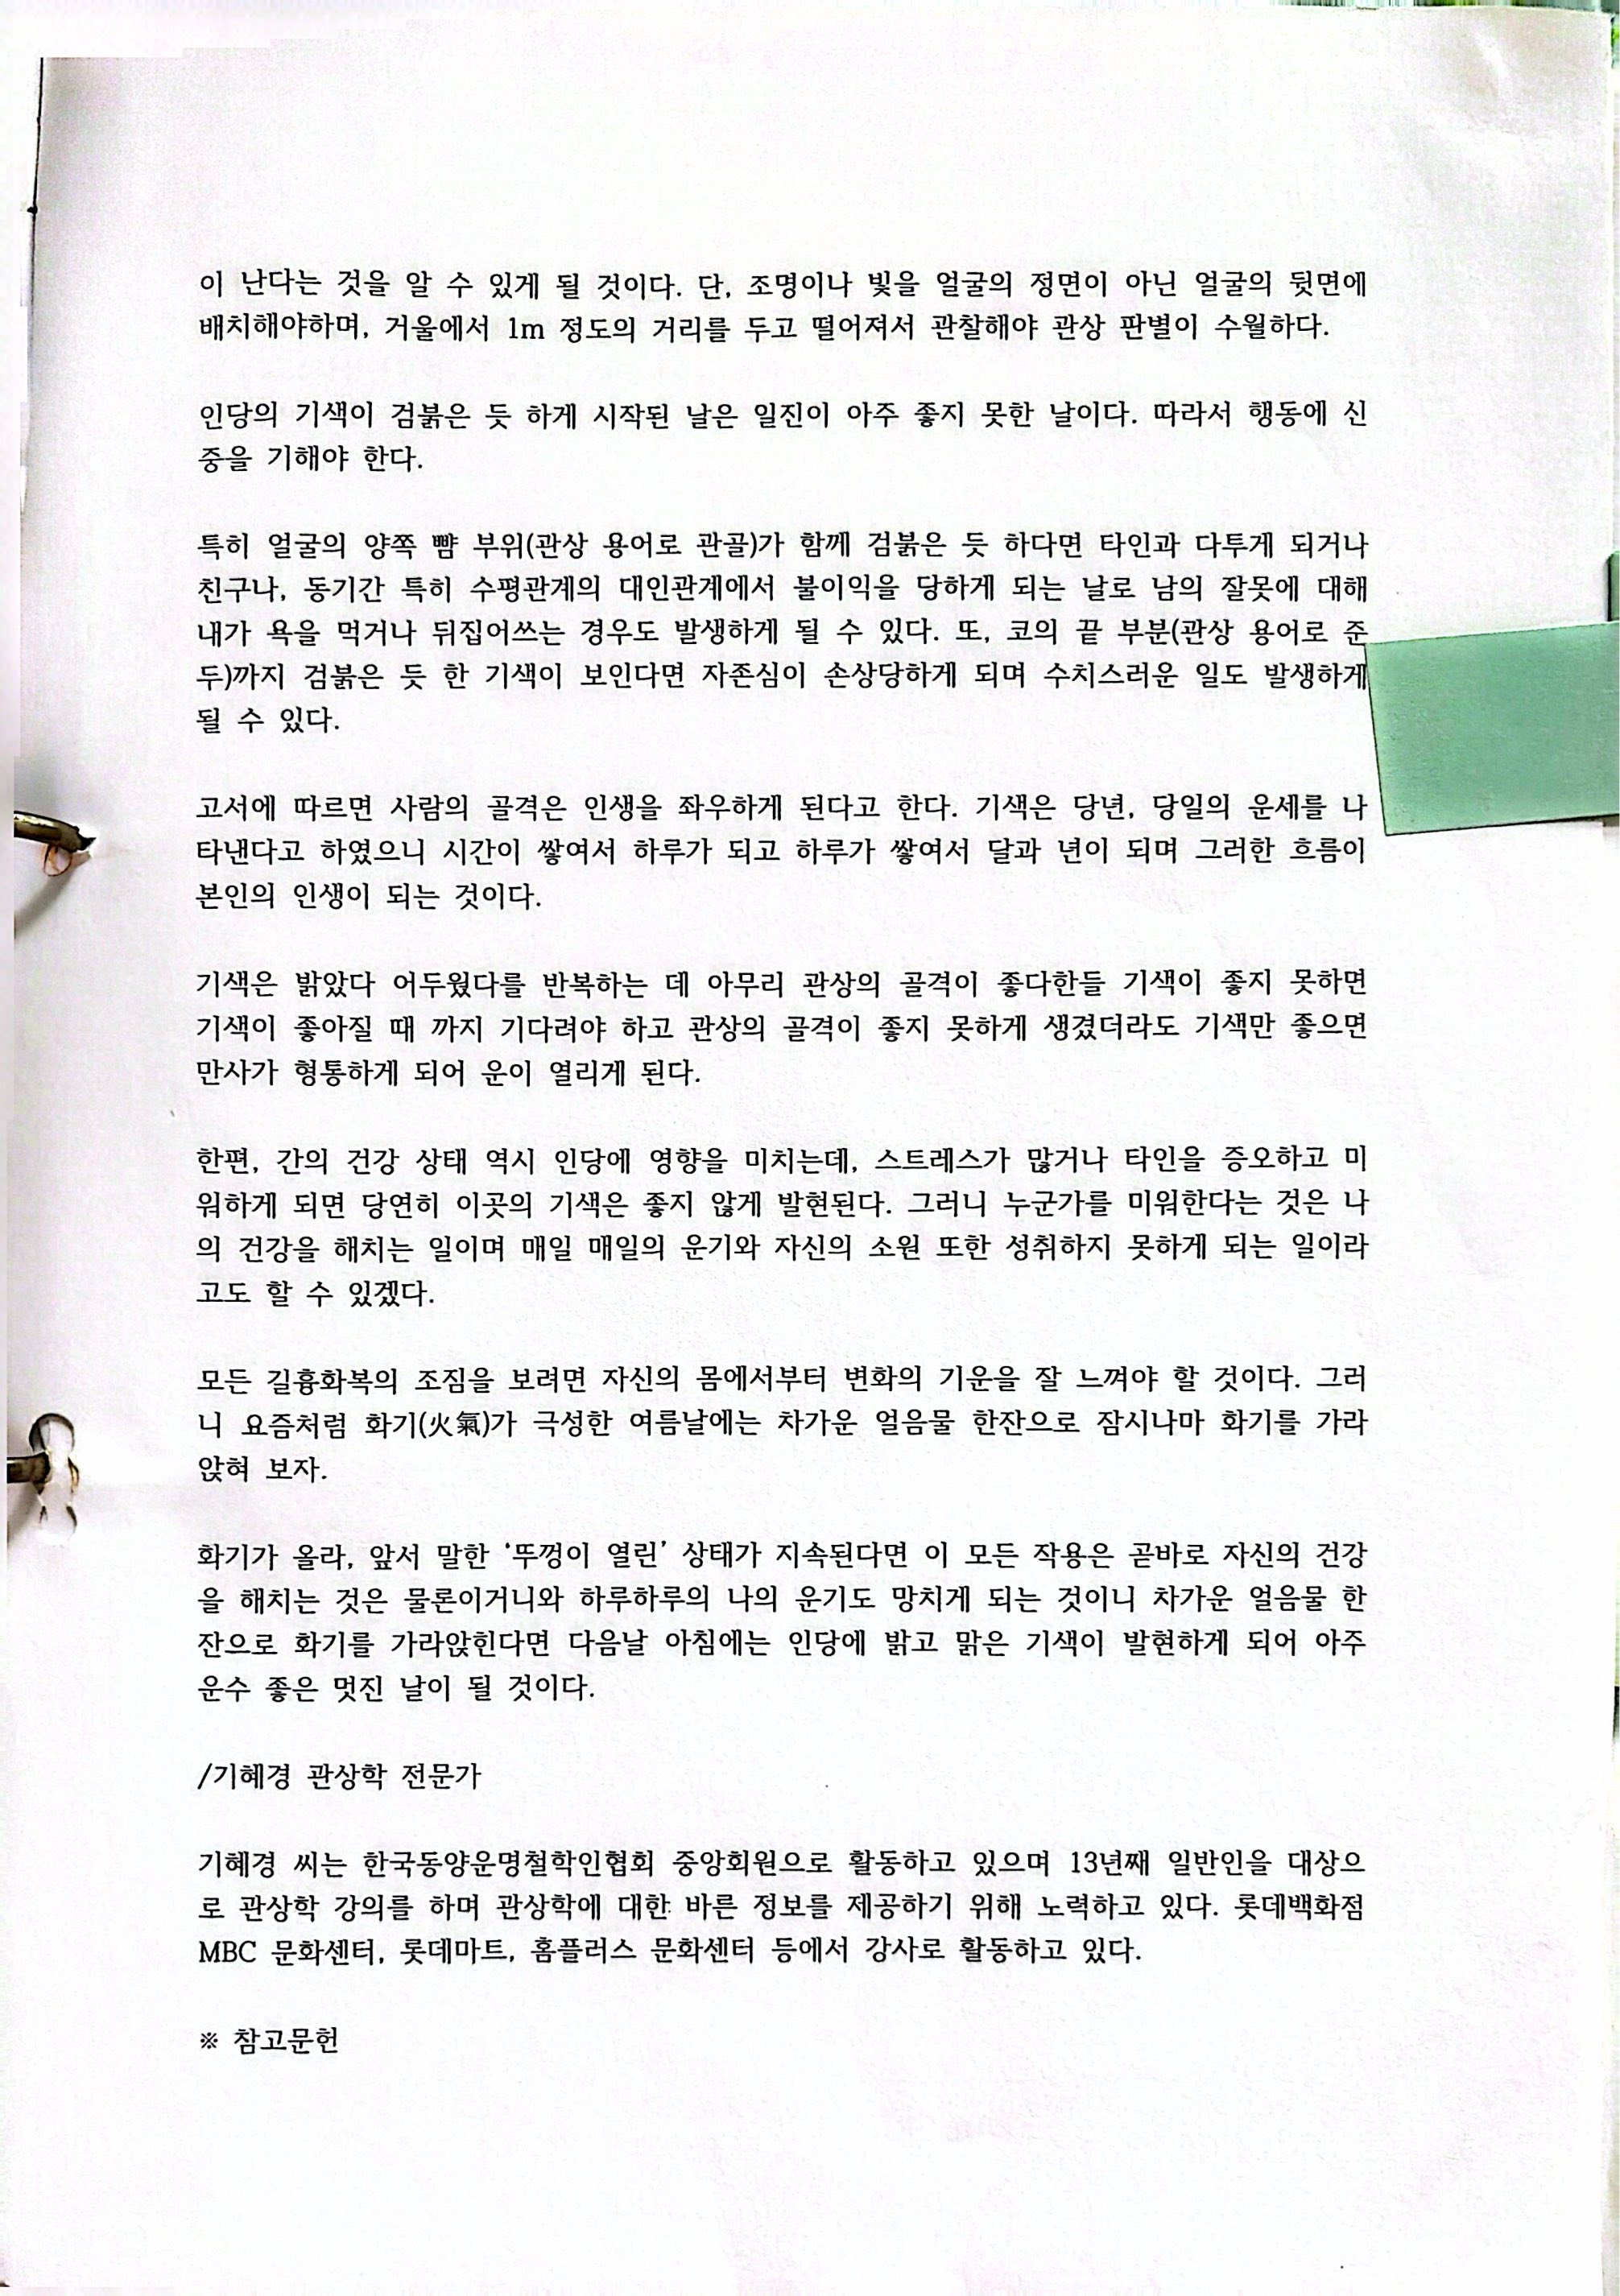 이 난다는 것을 알 수 있게 될 것이다. 단, 조명이나 빛을 얼굴의 정면이 아닌 얼굴의 뒷면에
배치해야하며, 거울에서 1m 정도의 거리를 두고 떨어져서 관찰해야 관상 판별이 수월하다.
인당의 기색이 검붉은 듯 하게 시작된 날은 일진이 아주 좋지 못한 날이다. 따라서 행동에 신
중을 기해야 한다.
특히 얼굴의 양쪽 뺨 부위(관상 용어로 관골)가 함께 검붉은 듯 하다면 타인과 다투게 되거나
친구나, 동기간 특히 수평관계의 대인관계에서 불이익을 당하게 되는 날로 남의 잘못에 대해
내가 욕을 먹거나 뒤집어쓰는 경우도 발생하게 될 수 있다. 또, 코의 끝 부분(관상 용어로 준
두)까지 검붉은 듯 한 기색이 보인다면 자존심이 손상당하게 되며 수치스러운 일도 발생하게
될 수 있다.
고서에 따르면 사람의 골격은 인생을 좌우하게 된다고 한다. 기색은 당년, 당일의 운세를 나
타낸다고 하였으니 시간이 쌓여서 하루가 되고 하루가 쌓여서 달과 년이 되며 그러한 흐름이
본인의 인생이 되는 것이다.
기색은 밝았다 어두웠다를 반복하는 데 아무리 관상의 골격이 좋다한들 기색이 좋지 못하면
기색이 좋아질 때 까지 기다려야 하고 관상의 골격이 좋지 못하게 생겼더라도 기색만 좋으면
만사가 형통하게 되어 운이 열리게 된다.
한편, 간의 건강 상태 역시 인당에 영향을 미치는데, 스트레스가 많거나 타인을 증오하고 미
워하게 되면 당연히 이곳의 기색은 좋지 않게 발현된다. 그러니 누군가를 미워한다는 것은 나
의 건강을 해치는 일이며 매일 매일의 운기와 자신의 소원 또한 성취하지 못하게 되는 일이라
고도 할 수 있겠다.
모든 길흉화복의 조짐을 보려면 자신의 몸에서부터 변화의 기운을 잘 느껴야 할 것이다. 그러
니 요즘처럼 화기(火氣)가 극성한 여름날에는 차가운 얼음물 한잔으로 잠시나마 화기를 가라
앉혀 보자.
화기가 올라, 앞서 말한 ‘뚜껑이 열린’ 상태가 지속된다면 이 모든 작용은 곧바로 자신의 건강
을 해치는 것은 물론이거니와 하루하루의 나의 운기도 망치게 되는 것이니 차가운 얼음물 한
잔으로 화기를 가라앉힌다면 다음날 아침에는 인당에 밝고 맑은 기색이 발현하게 되어 아주
운수 좋은 멋진 날이 될 것이다.
/기혜경 관상학 전문가
기혜경 씨는 한국동양운명철학인협회 중앙회원으로 활동하고 있으며 13년째 일반인을 대상으
로 관상학 강의를 하며 관상학에 대한 바른 정보를 제공하기 위해 노력하고 있다. 롯데백화점
MBC 문화센터, 롯데마트, 홈플러스 문화센터 등에서 강사로 활동하고 있다.
※ 참고문헌